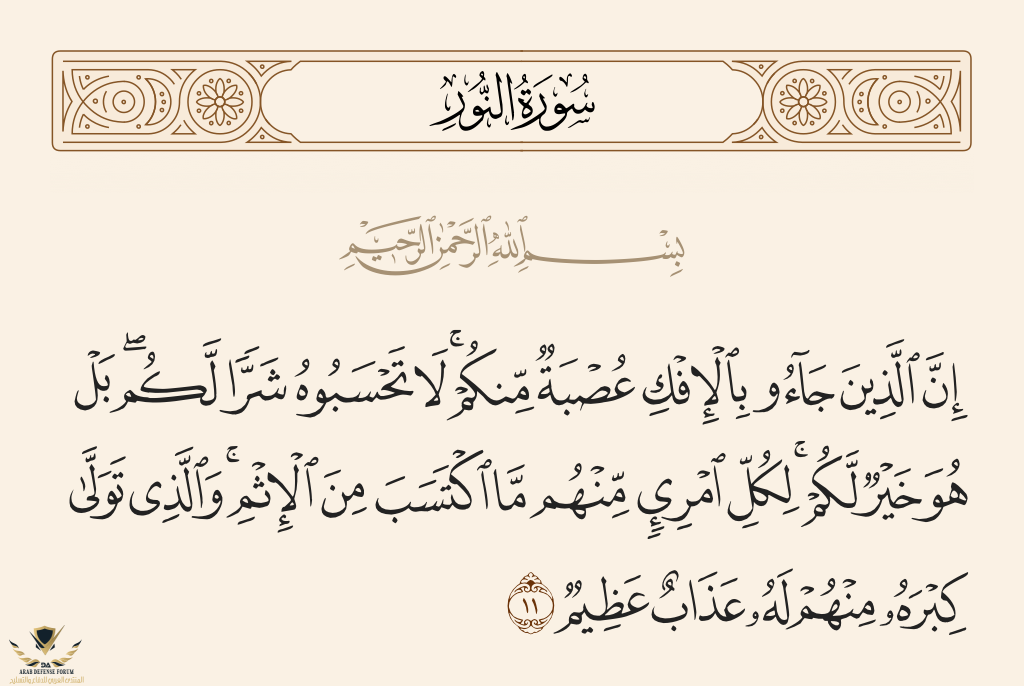 سُورَةُ النُّورِ
بِسْمِ ٱللَّهِ ٱلرَّحْمَٰنِ ٱلرَّحِيمِ
إِنَّ ٱلَّذِينَ جَآءُو بِٱلْإِفْكِ عُصْبَةٌ مِّنكُمْ ۚ لَا تَحْسَبُوهُ شَرًّا لَّكُم ۖ بَلْ
هُوَ خَيْرٌ لَّكُمْ ۚ لِكُلِّ ٱمْرِئٍ مِّنْهُم مَّا ٱكْتَسَبَ مِنَ ٱلْإِثْمِ ۚ وَٱلَّذِى تَوَلَّىٰ
كِبْرَهُۥ مِنْهُمْ لَهُۥ عَذَابٌ عَظِيمٌ ١١
DA
ARAB DEFENSE FORUM
المنتدى العربي للدفاع والتسليح